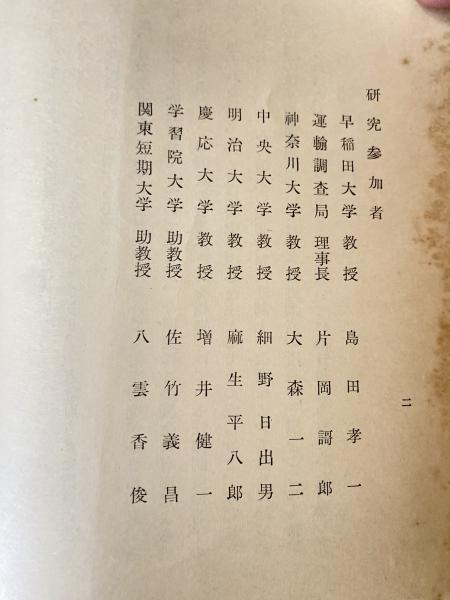 研究参加者
早稲田大学教授 島田孝一
運輸調査局理事長 片岡謌郎
神奈川大学教授 大森一二
中央大学教授 細野日出男
明治大学教授 麻生平八郎
慶応大学教授 増井健一
学習院大学助教授 佐竹義昌
関東短期大学助教授 八雲香俊
二